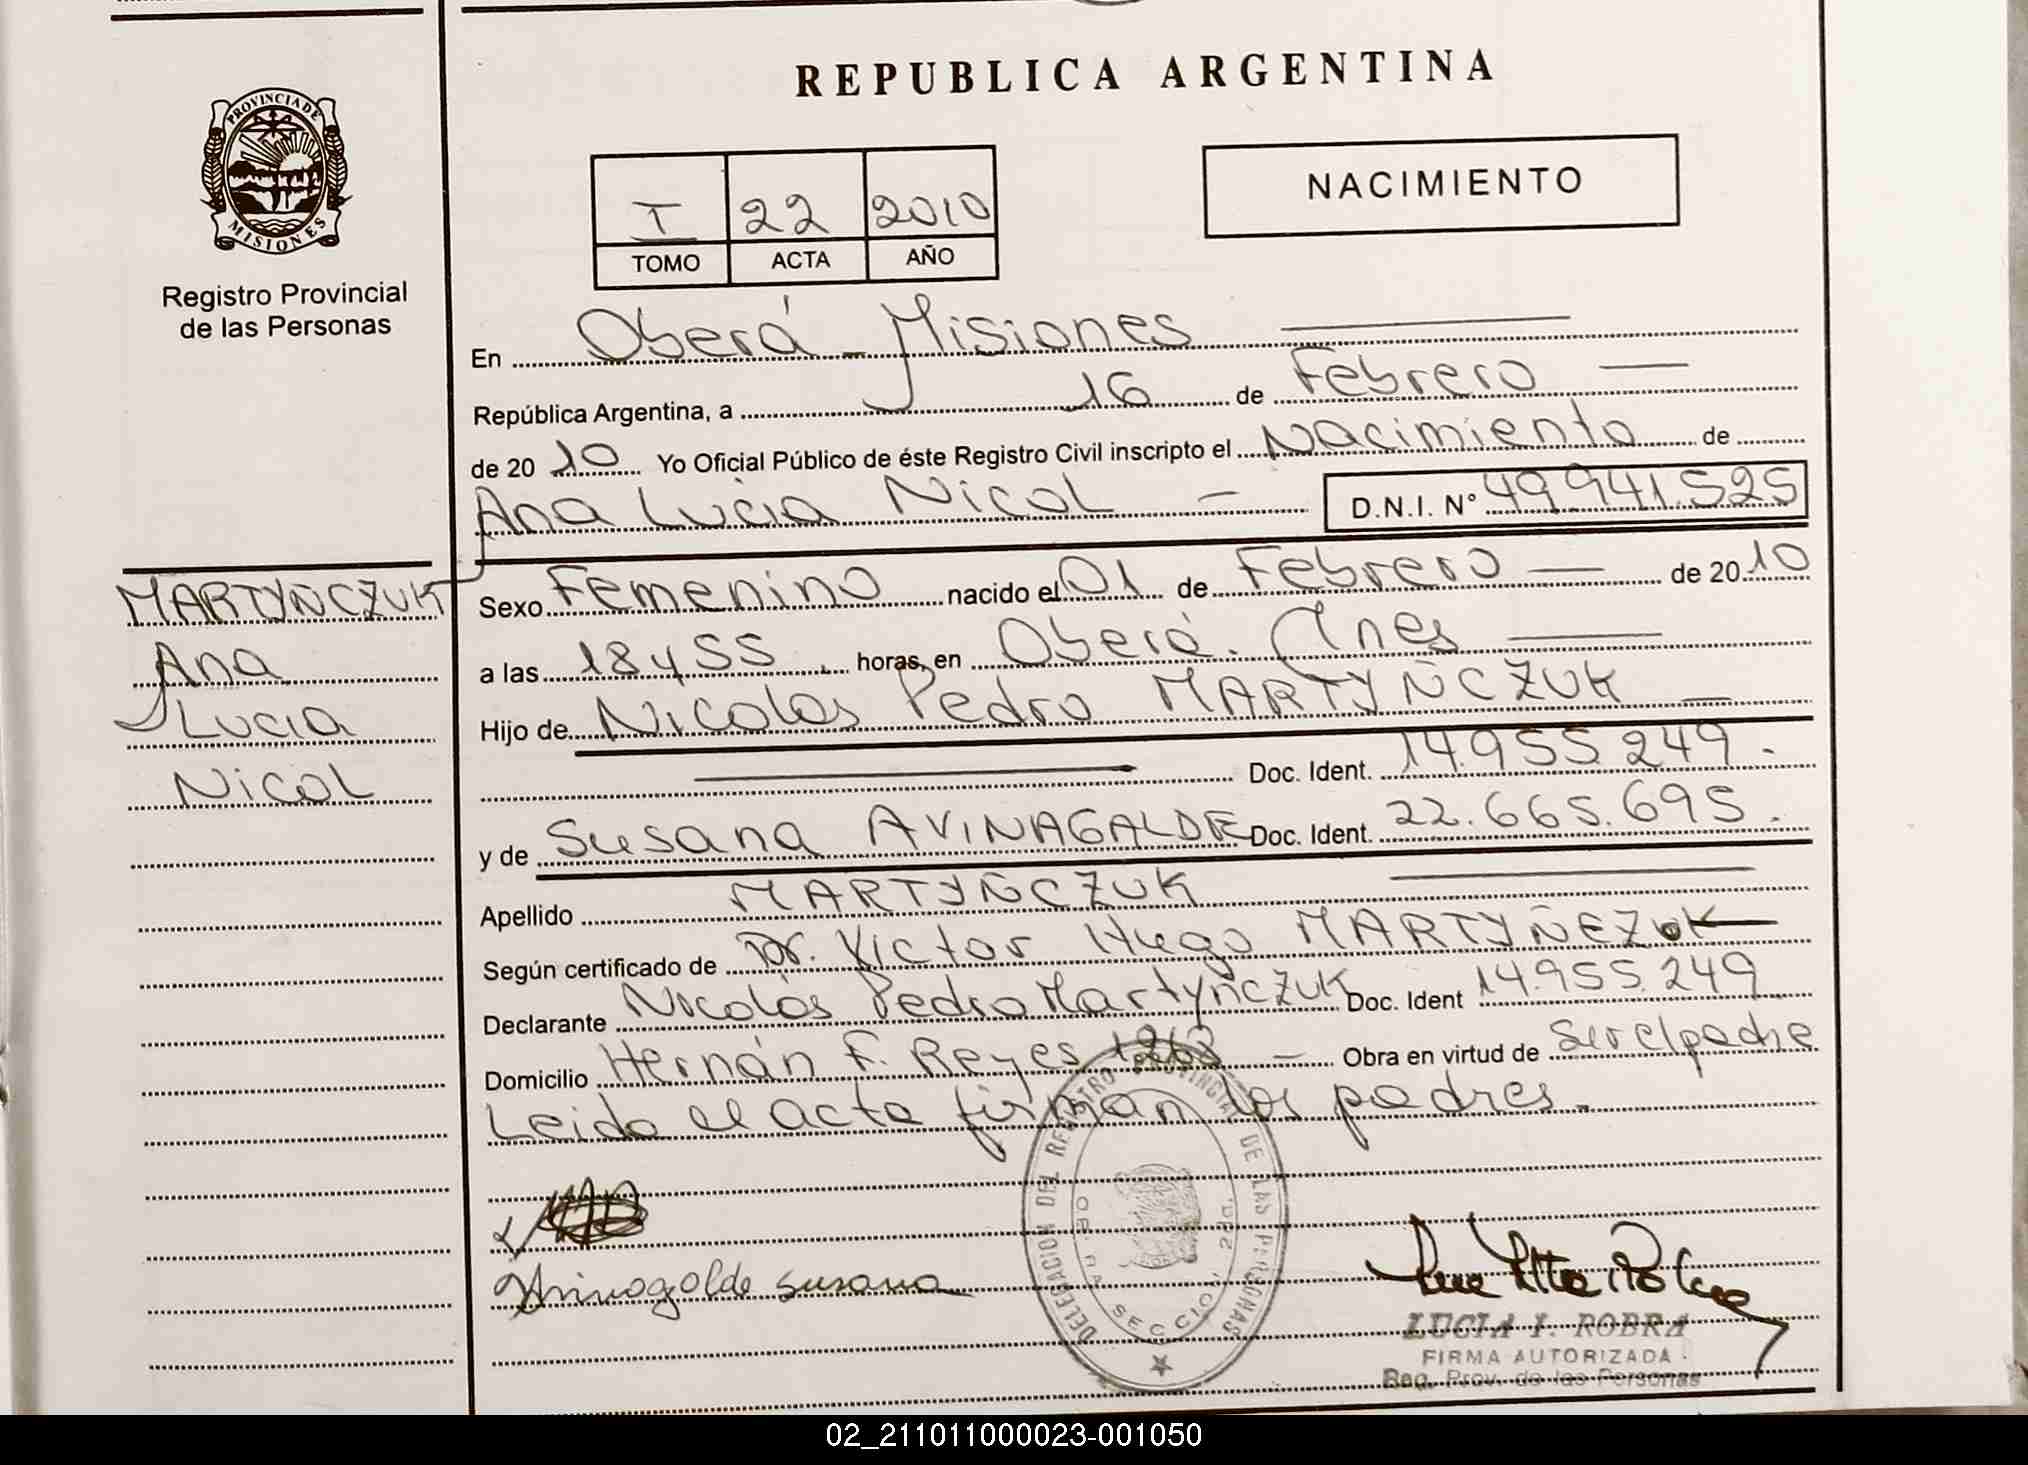 REPUBLICA ARGENTINA
PROVINCIA DE MISIONES
Registro Provincial
de las Personas
I 22 2010
TOMO ACTA AÑO
NACIMIENTO
En Oberá - Misiones
República Argentina, a 16 de Febrero
de 2010 Yo Oficial Público de éste Registro Civil inscripto el Nacimiento de
Ana Lucia Nicol D.N.I. N° 49.941.525
MARTYÑCZUK
Ana
Lucia
Nicol
Sexo Femenino nacido el 01 de Febrero de 2010
a las 18 y 55 horas, en Oberá. Mnes
Hijo de Nicolas Pedro MARTYÑCZUK
Doc. Ident. 14.955.249.
y de Susana AVINAGALDE Doc. Ident. 22.665.695.
Apellido MARTYÑCZUK
Según certificado de Dr. Victor Hugo MARTYÑEZUK
Declarante Nicolás Pedro Martyñczuk Doc. Ident 14.955.249
Domicilio Hernán F. Reyes Obra en virtud de ser el padre
Leida el acta firman los padres.
Avinagalde Susana
DELEGACION DEL REGISTRO PROVINCIAL DE LAS PERSONAS
SECCION
LUCIA I. ROBRA
FIRMA AUTORIZADA
Reg. Prov. de las Personas
02_211011000023-001050